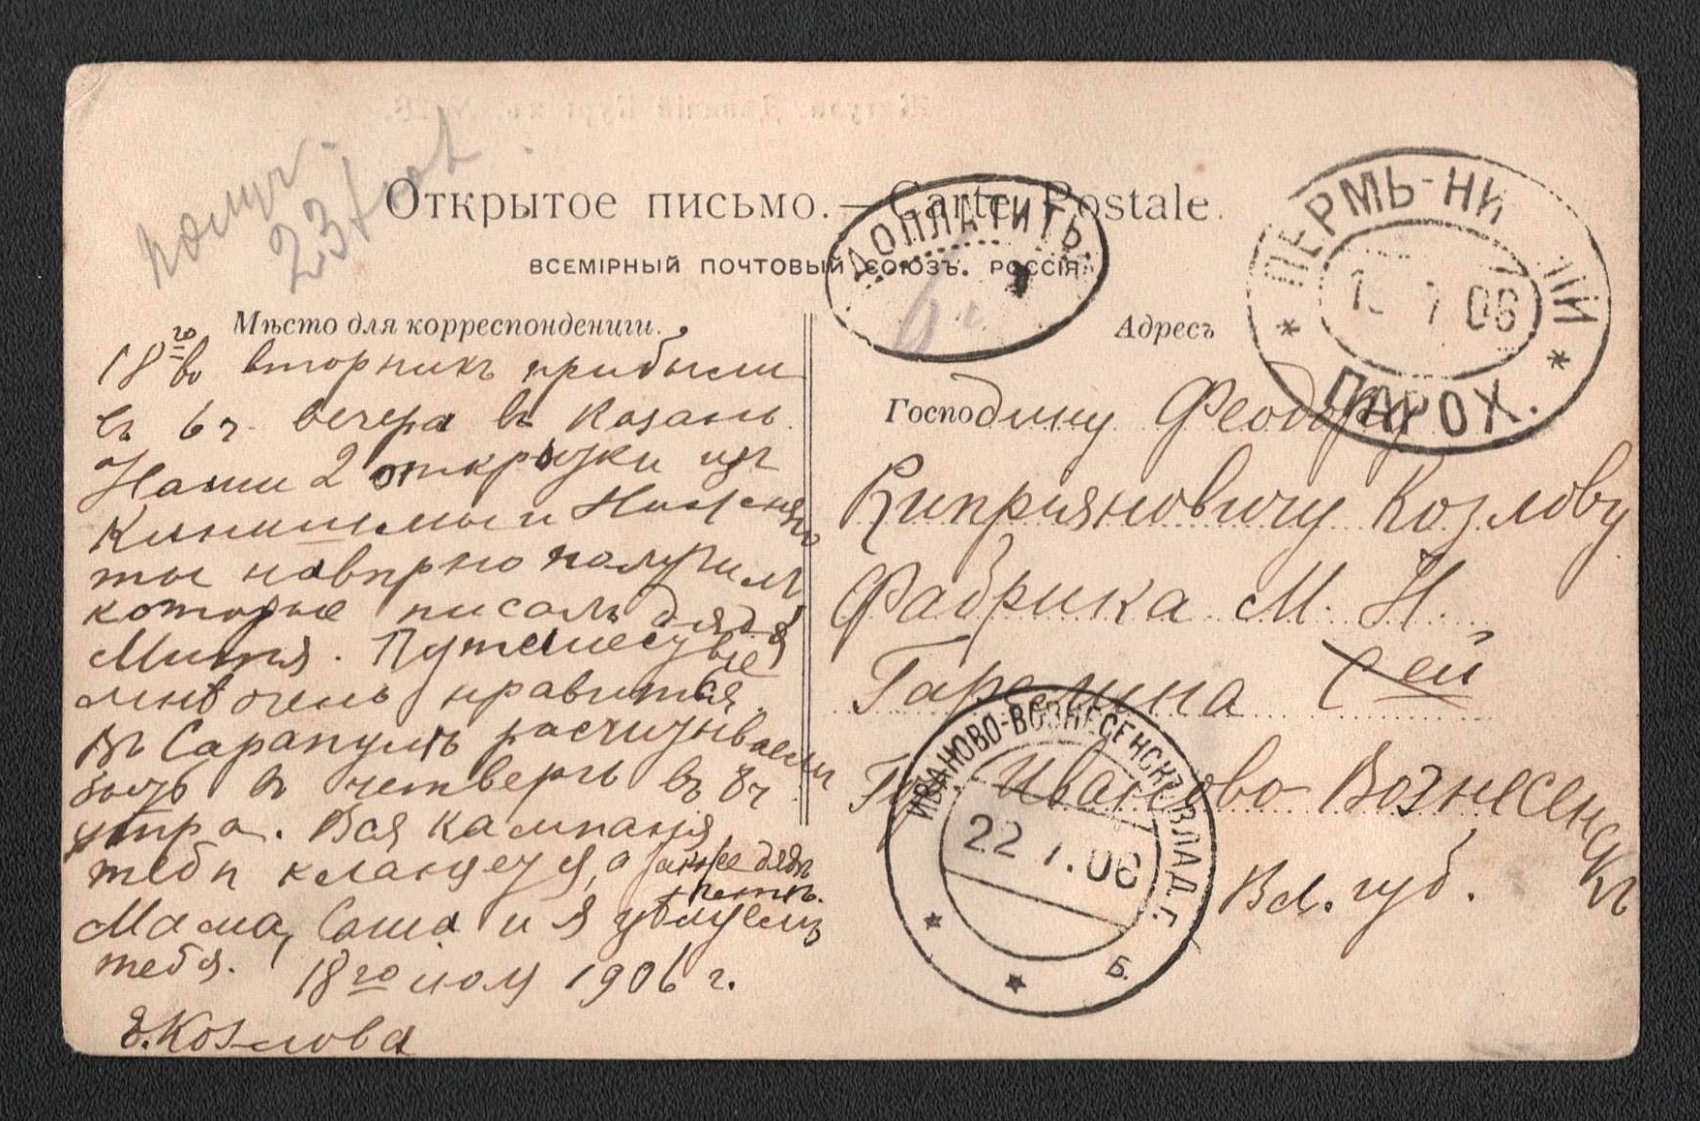 получ.
23 июля
Открытое письмо. — Carte Postale.
ВСЕМІРНЫЙ ПОЧТОВЫЙ СОЮЗЪ. РОССІЯ.
ДОПЛАТИТЬ.
ПЕРМЬ-НИ ІЙ
7 06
ПАРОХ.
Мѣсто для корреспонденціи.
18го во вторникъ прибыли
въ 6 ч. вечера въ Казань.
Наши 2 открытки изъ
Кинишмы и Нижняго
ты наверно получилъ
которые писалъ дядя
Митя. Путешествіе
мнѣ очень нравится.
Въ Сарапулъ расчитываемъ
быть въ четвергъ въ 8 ч
утра. Вся кампанія
тебѣ кланяется, а также дядя
Петя.
Мама, Саша и я цѣлуемъ
тебя. 18го июля 1906 г.
Е. Козлова
Адресъ
Господину Феодору
Киприяновичу Козлову
Фабрика М. Н.
Гарелина Сей
Гр. Иваново-Вознесенскъ
Вл. губ.
ИВАНОВО-ВОЗНЕСЕНСКЪ ВЛАД. Г.
22 7.06
Б.